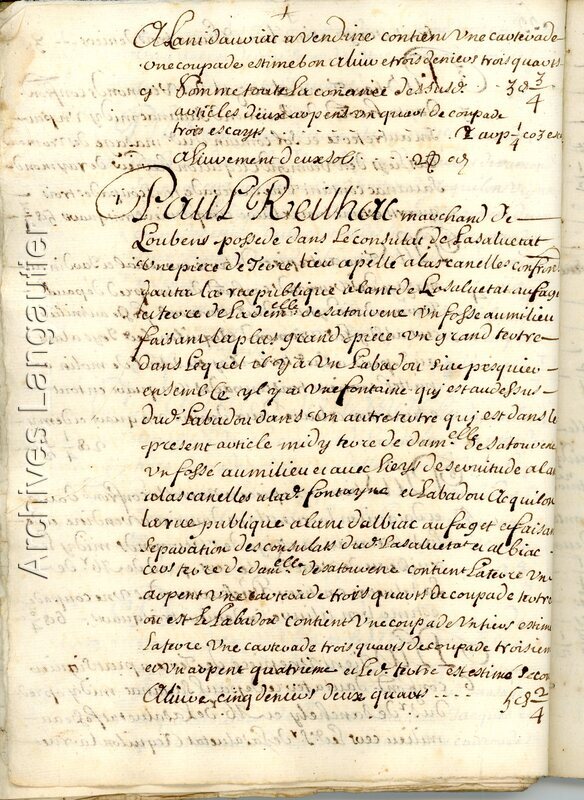 A Lani dauriac a vendine contient Une cartevade
une coupade estime bon alivre trois deniers trois quarts
cy Somme toute La contance desusd. 3 d 3/4
articles deux arpens un quart de coupade
trois escayts 2 arp 1/4 co 3 esc
alivrement deux sols
1. Paul Reilhac marchand de
Loubens possede dans Le consulat de Lasaluetat
Une piece de Terre lieu apellé alascanelles confron
dauta la rue publique alant de Lasaluetat aufaget
terre de La dem.elle desatouvene Un fosse aumilieu
faisant La plus grand piece Un grand tertre
dans Lequel il y a Un Labadou sive pesquier
ensemble y l y a Une fontaine qui est audessus
dud. Labadou dans Un autre tertre qui est dans le
present article midy terre de dam.elle desatouvene
Un fossé aumilieu et avec
alascanelles alad. fontayne et Labadou Acquilon
La rue publique alant dalbiac aufaget et faisan
separation des consulats dud. Lasaluetat et albiac
cers terre de dam.elle desatouvene contient La terre Un
arpent Une carterade trois quarts de coupade tertre
ou est le Labadou contient Une coupade Un tiers estime
La terre Une carterade trois quarts de coupade troisiem
et Un arpent quatrieme et Led. tertre est estimé
Alivre cinq deniers deux quarts .... 5 d 2/4
Archives Langautier